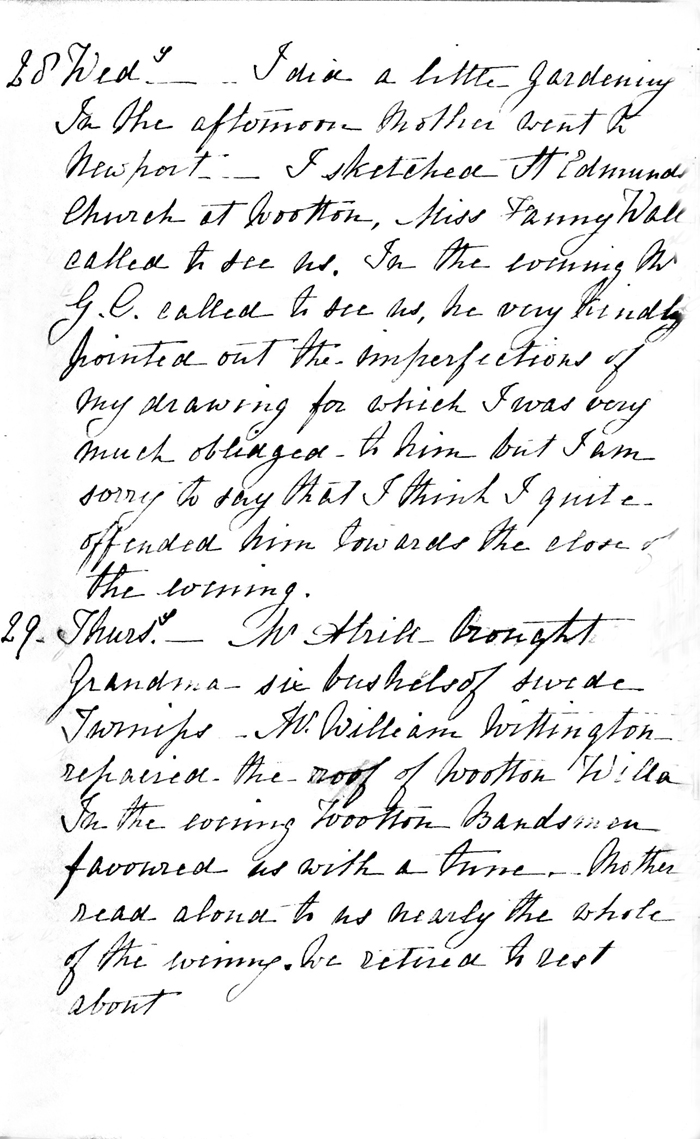 28 Wedy. — I did a little gardening
In the afternoon Mother went to
Newport — I sketched St Edmunds
Church at Wootton, Miss Fanny Wall
called to see us. In the evening Mr
G. C. called to see us, he very kindly
pointed out the imperfections of
my drawing for which I was very
much obliged to him but I am
sorry to say that I think I quite
offended him towards the close of
the evening.
29. Thursy. — Mr brought
Grandma six bushels of swede
Turnips — Mr. William Wittington
repaired the roof of Wootton Villa
In the evening Wootton Bandsmen
favoured us with a tune. Mother
read aloud to us nearly the whole
of the evening. We retired to rest
about